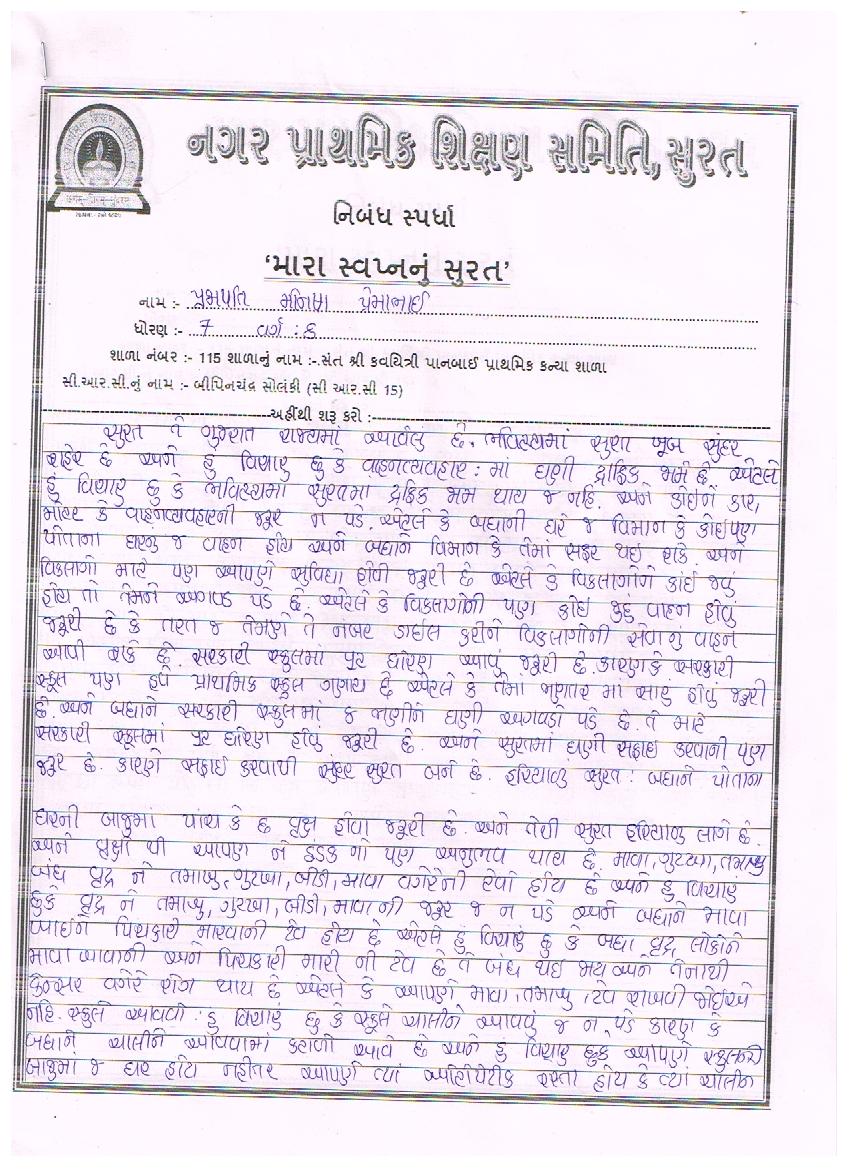 નગર પ્રાથમિક શિક્ષણ સમિતિ, સુરત
નિબંધ સ્પર્ધા
‘મારા સ્વપ્નનું સુરત’
નામ :- પ્રજાપતિ મનિષા પ્રેમાભાઈ
ધોરણ :- 7 વર્ગ : ક
શાળા નંબર :- 115 શાળાનું નામ :-.સંત શ્રી કવયિત્રી પાનબાઈ પ્રાથમિક કન્યા શાળા
સી.આર.સી.નું નામ :- બીપિનચંદ્ર સોલંકી (સી આર.સી 15)
અહીંથી શરૂ કરો :-
સુરત તે ગુજરાત રાજ્યમાં આવેલું છે. ભવિષ્યમાં સુરત ખૂબ સુંદર
શહેર છે અને હું વિચારુ છુ કે વાહનવ્યવહાર : માં ઘણી ટ્રાફિક જામ છે. એટલે
હું વિચારુ છુ કે ભવિષ્યમાં સુરતમા ટ્રાફિક જામ થાય જ નહિ. અને કોઈને કાર,
મોટર કે વાહનવ્યવહારની જરૂર ન પડે. એટલે કે બધાની ઘરે જ વિમાન કે કોઈપણ
પોતાના ઘરનુ જ વાહન હોય અને બધાને વિમાન કે તેમાં સફર થઈ શકે અને
વિકલાગો માટે પણ આપણે સુવિધા હોવી જરૂરી છે એટલે કે વિકલાગોને કોઈ જવું
હોય તો તેમને અગવડ પડે છે. એટલે કે વિકલાગોની પણ કોઈ વાહન હોવું
જરૂરી છે કે તરત જ તેમણે તે નંબર ડાઈલ કરીને વિકલાગોની સેવાનું વાહન
આવી શકે છે. સરકારી સ્કૂલમાં ૧૨ ધોરણ આવું જરૂરી છે. કારણકે સરકારી
સ્કૂલ પણ હવે પ્રાથમિક સ્કૂલ ગણાય છે એટલે કે તેમાં ભણતર મા સારું હોવું જરૂરી
છે. અને બધાને સરકારી સ્કૂલમાં ૮ ભણીને ઘણી અગવડો પડે છે. તે માટે
સરકારી સ્કૂલમાં ૧૨ ધોરણ હોવું જરૂરી છે. અને સુરતમાં ઘણી સફાઈ કરવાની પણ
જરૂર છે. કારણે સફાઈ કરવાથી સુંદર સુરત બને છે. હરિયાળુ સુરત : બધાને પોતાના
ઘરની બાજુમાં પાંચ કે છ વૃક્ષ હોવા જરૂરી છે. અને તેથી સુરત હરિયાળુ લાગે છે.
અને વૃક્ષો થી આપણ ને ઠંડક નો પણ અનુભવ થાય છે. માવા, ગુટખા, તમાખુ
બંધ વૃદ્ર ને તમાખુ, ગુટખા, બીડી, માવા વગેરેની ટેવો હોય છે અને હુ વિચારુ
છુકે વૃદ્ર ને તમાખુ, ગુટખા, બીડી, માવા ની જરૂર જ ન પડે અને બધાને માવા
ખાઈને પિચકારી મારવાની ટેવ હોય છે એટલે હું વિચારું છુ કે બધા વૃદ્ર લોકોને
માવા ખાવાની અને પિચકારી મારી ની ટેવ છે તે બંધ થઈ જાય અને તેનાથી
કેન્સર વગેરે રોગ થાય છે એટલે કે આપણે માવા, તમાખુ, ટેવ રાખવી જોઈએ
નહિ. સ્કૂલે આવવી : હુ વિચારું છુ કે સ્કૂલે ચાલીને આવવું જ ન પડે કારણ કે
બધાને ચાલીને આવવામાં કટાળી આવે છે અને હું વિચારુ છુકે આપણે સ્કૂલની
બાજુમાં જ ઘર હોય નહીતર આપણે ત્યાં ઓટોમેટીક રસ્તા હોય કે ત્યાં ચાલીને